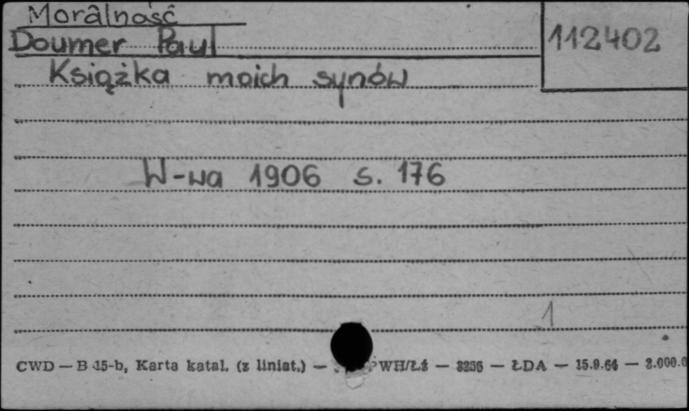 Moralność
Doumer Paul
112402
Książka moich synów
W-wa 1906 s. 176
1
CWD — B 15-b, Karta katal. (z liniat.) — WH/Łź — 3256 — ŁDA — 15.9.64 — 3.000.0